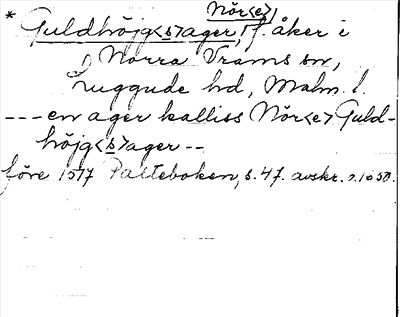 Nör<e>
* Guldhöjg<s>ager, f. åker i
Norra Vrams sn,
Luggude hd, Malm. l.
--- en ager kalliss Nör<e> Guld-
höjg<s>ager --
före 1517 Palteboken, s. 47. avskr. o. 1650.